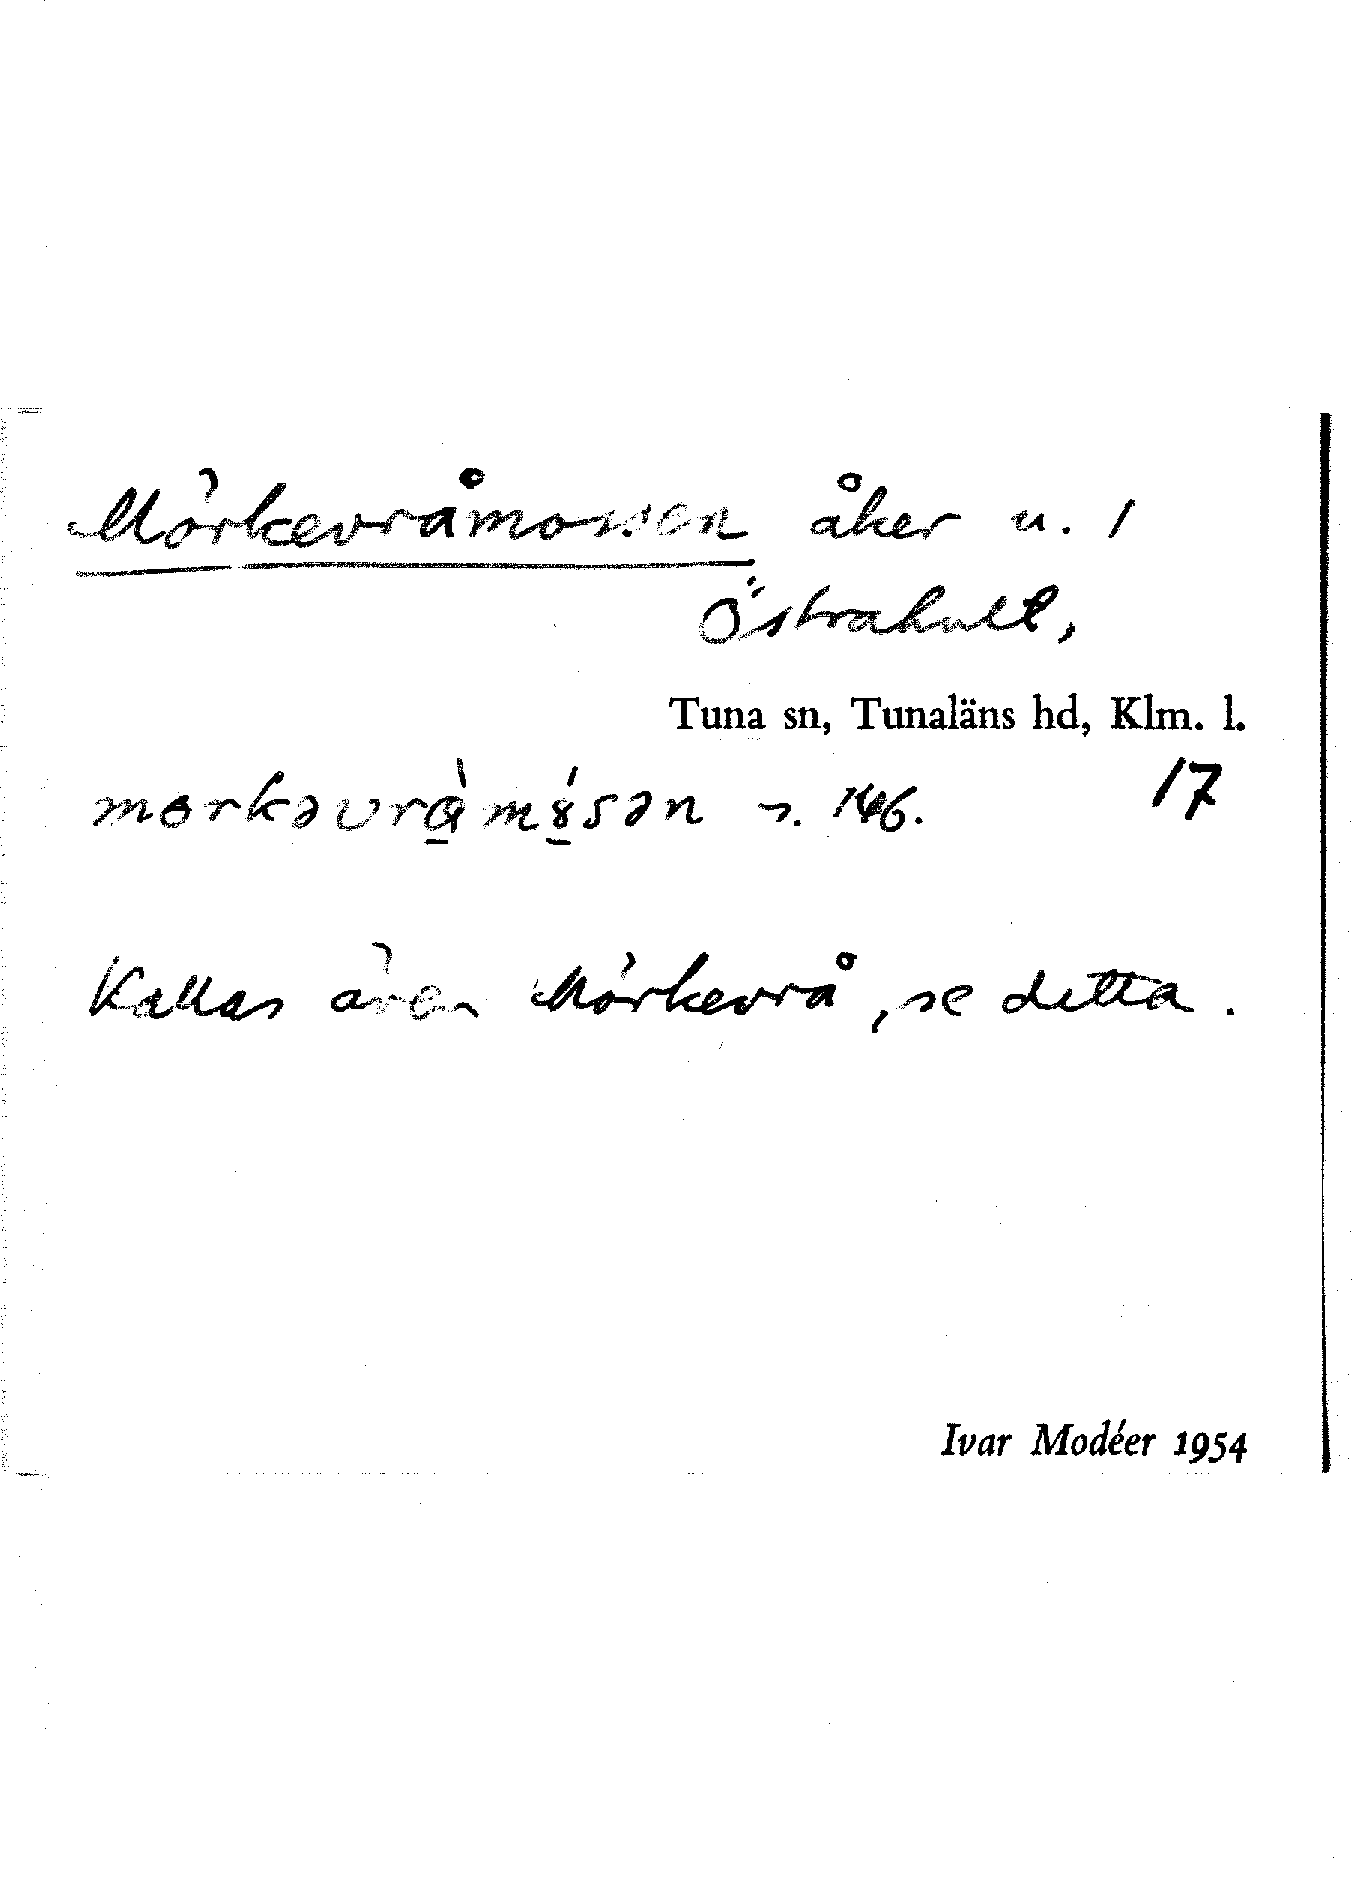 Mörkevråmossen åker u. 1
Östrahult,
Tuna sn, Tunaläns hd, Klm. l.
mɵrkəvrɑ̀mɤ́sən s. 146. 17
Kallas även Mörkevrå, se detta.
Ivar Modéer 1954